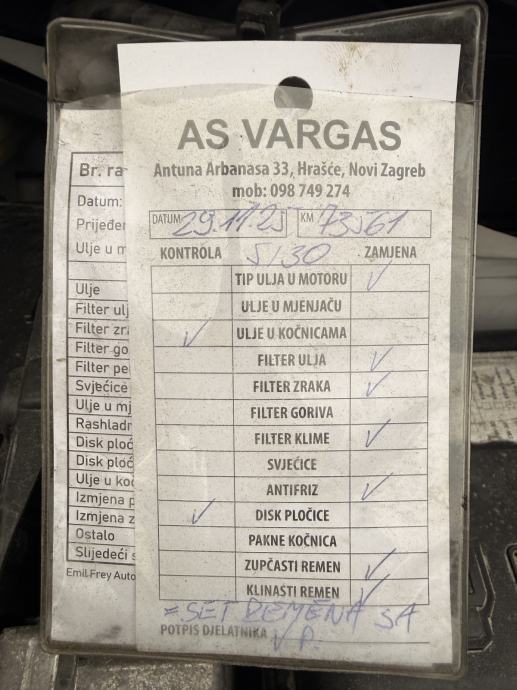 AS VARGAS
Antuna Arbanasa 33, Hrašće, Novi Zagreb
mob: 098 749 274
DATUM 29.11.25 KM 73561
KONTROLA 5/30 ZAMJENA
TIP ULJA U MOTORU ✓
ULJE U MJENJAČU
✓ ULJE U KOČNICAMA
FILTER ULJA ✓
FILTER ZRAKA ✓
FILTER GORIVA
FILTER KLIME ✓
SVJEĆICE
ANTIFRIZ ✓
✓ DISK PLOČICE
PAKNE KOČNICA
ZUPČASTI REMEN ✓
KLINASTI REMEN ✓
= SET REMENA SA
POTPIS DJELATNIKA V.P.
Br. ra
Datum:
Prijeđen
Ulje u m
Ulje
Filter ulj
Filter zra
Filter go
Filter pe
Svjećice
Ulje u mj
Rashladn
Disk ploč
Disk ploč
Ulje u koč
Izmjena p
Izmjena z
Ostalo
Slijedeći s
Emil Frey Auto